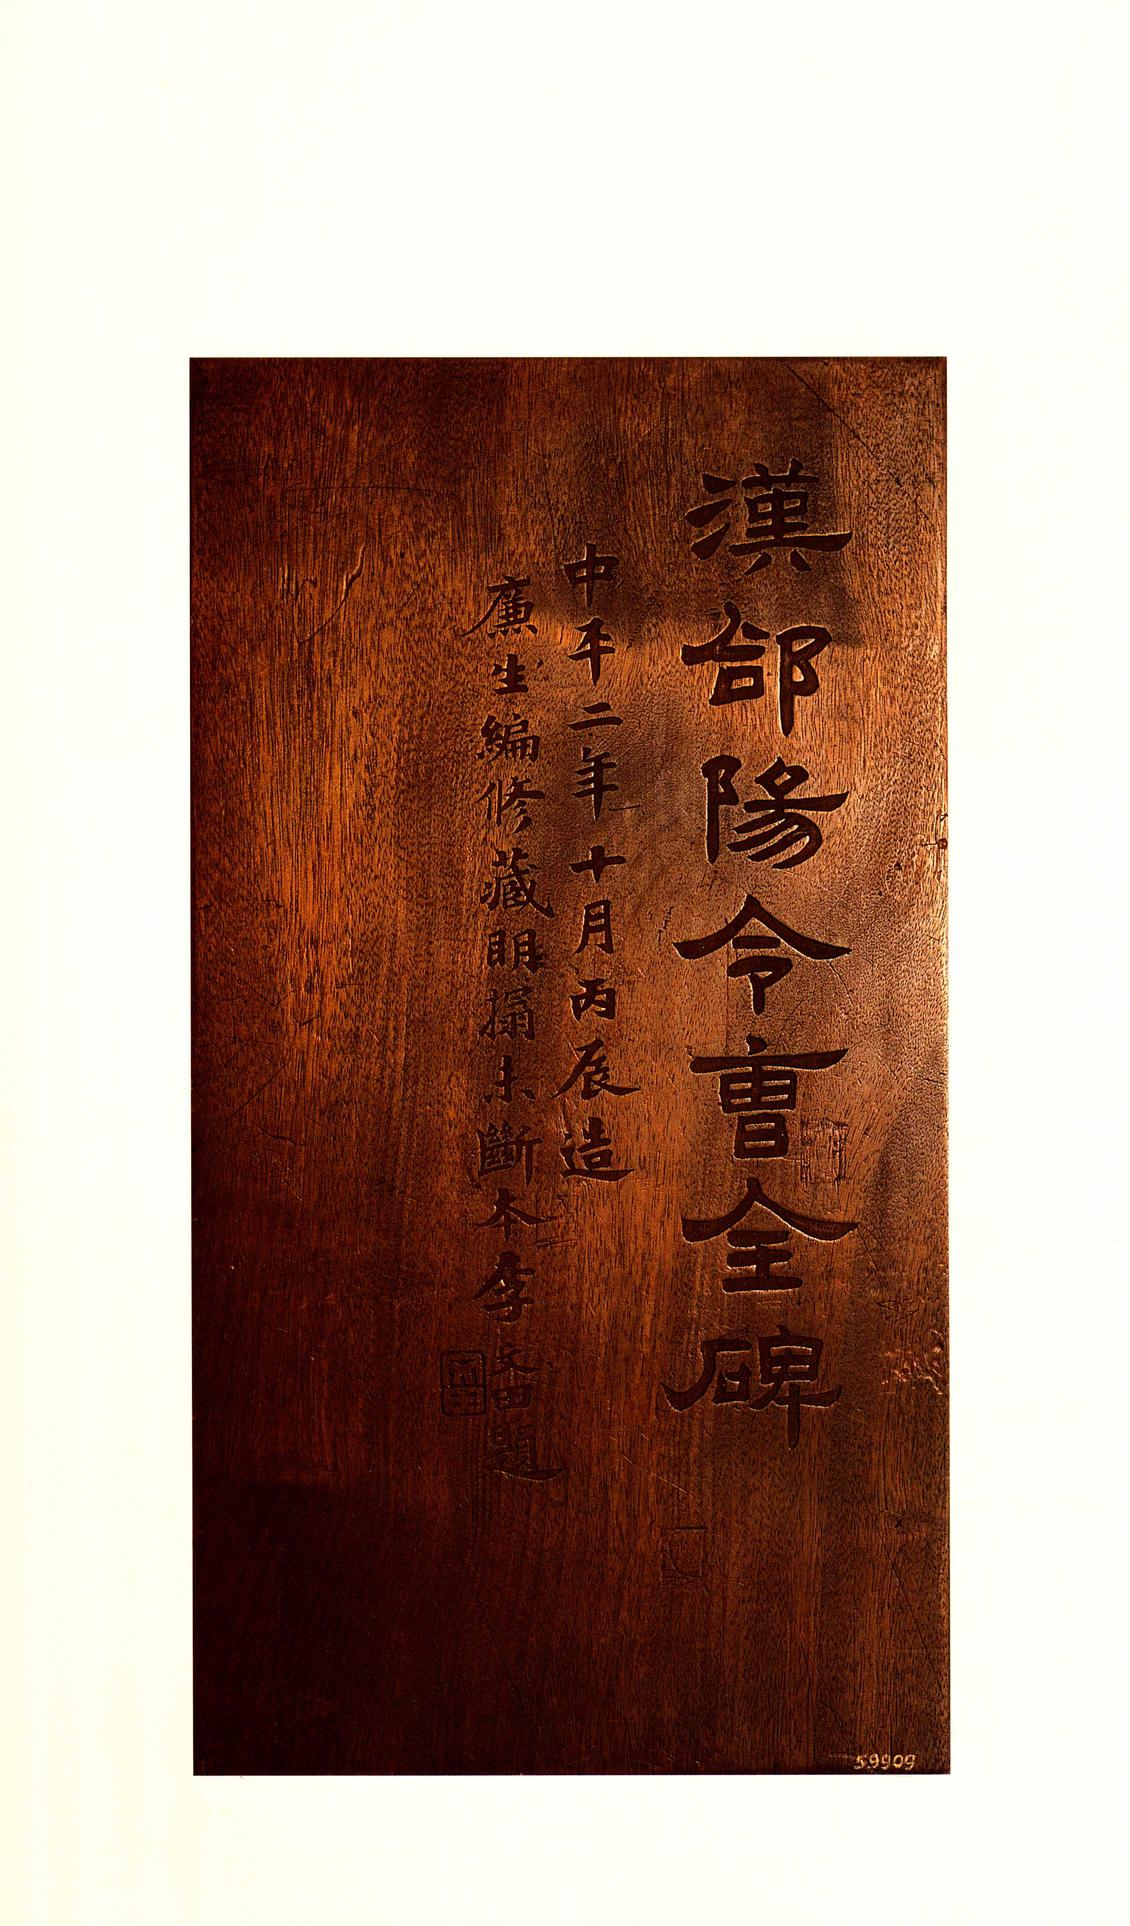 漢郃陽令曹全碑
中平二年十月丙辰造
廉生編修藏明搨未斷本李文田題
59909